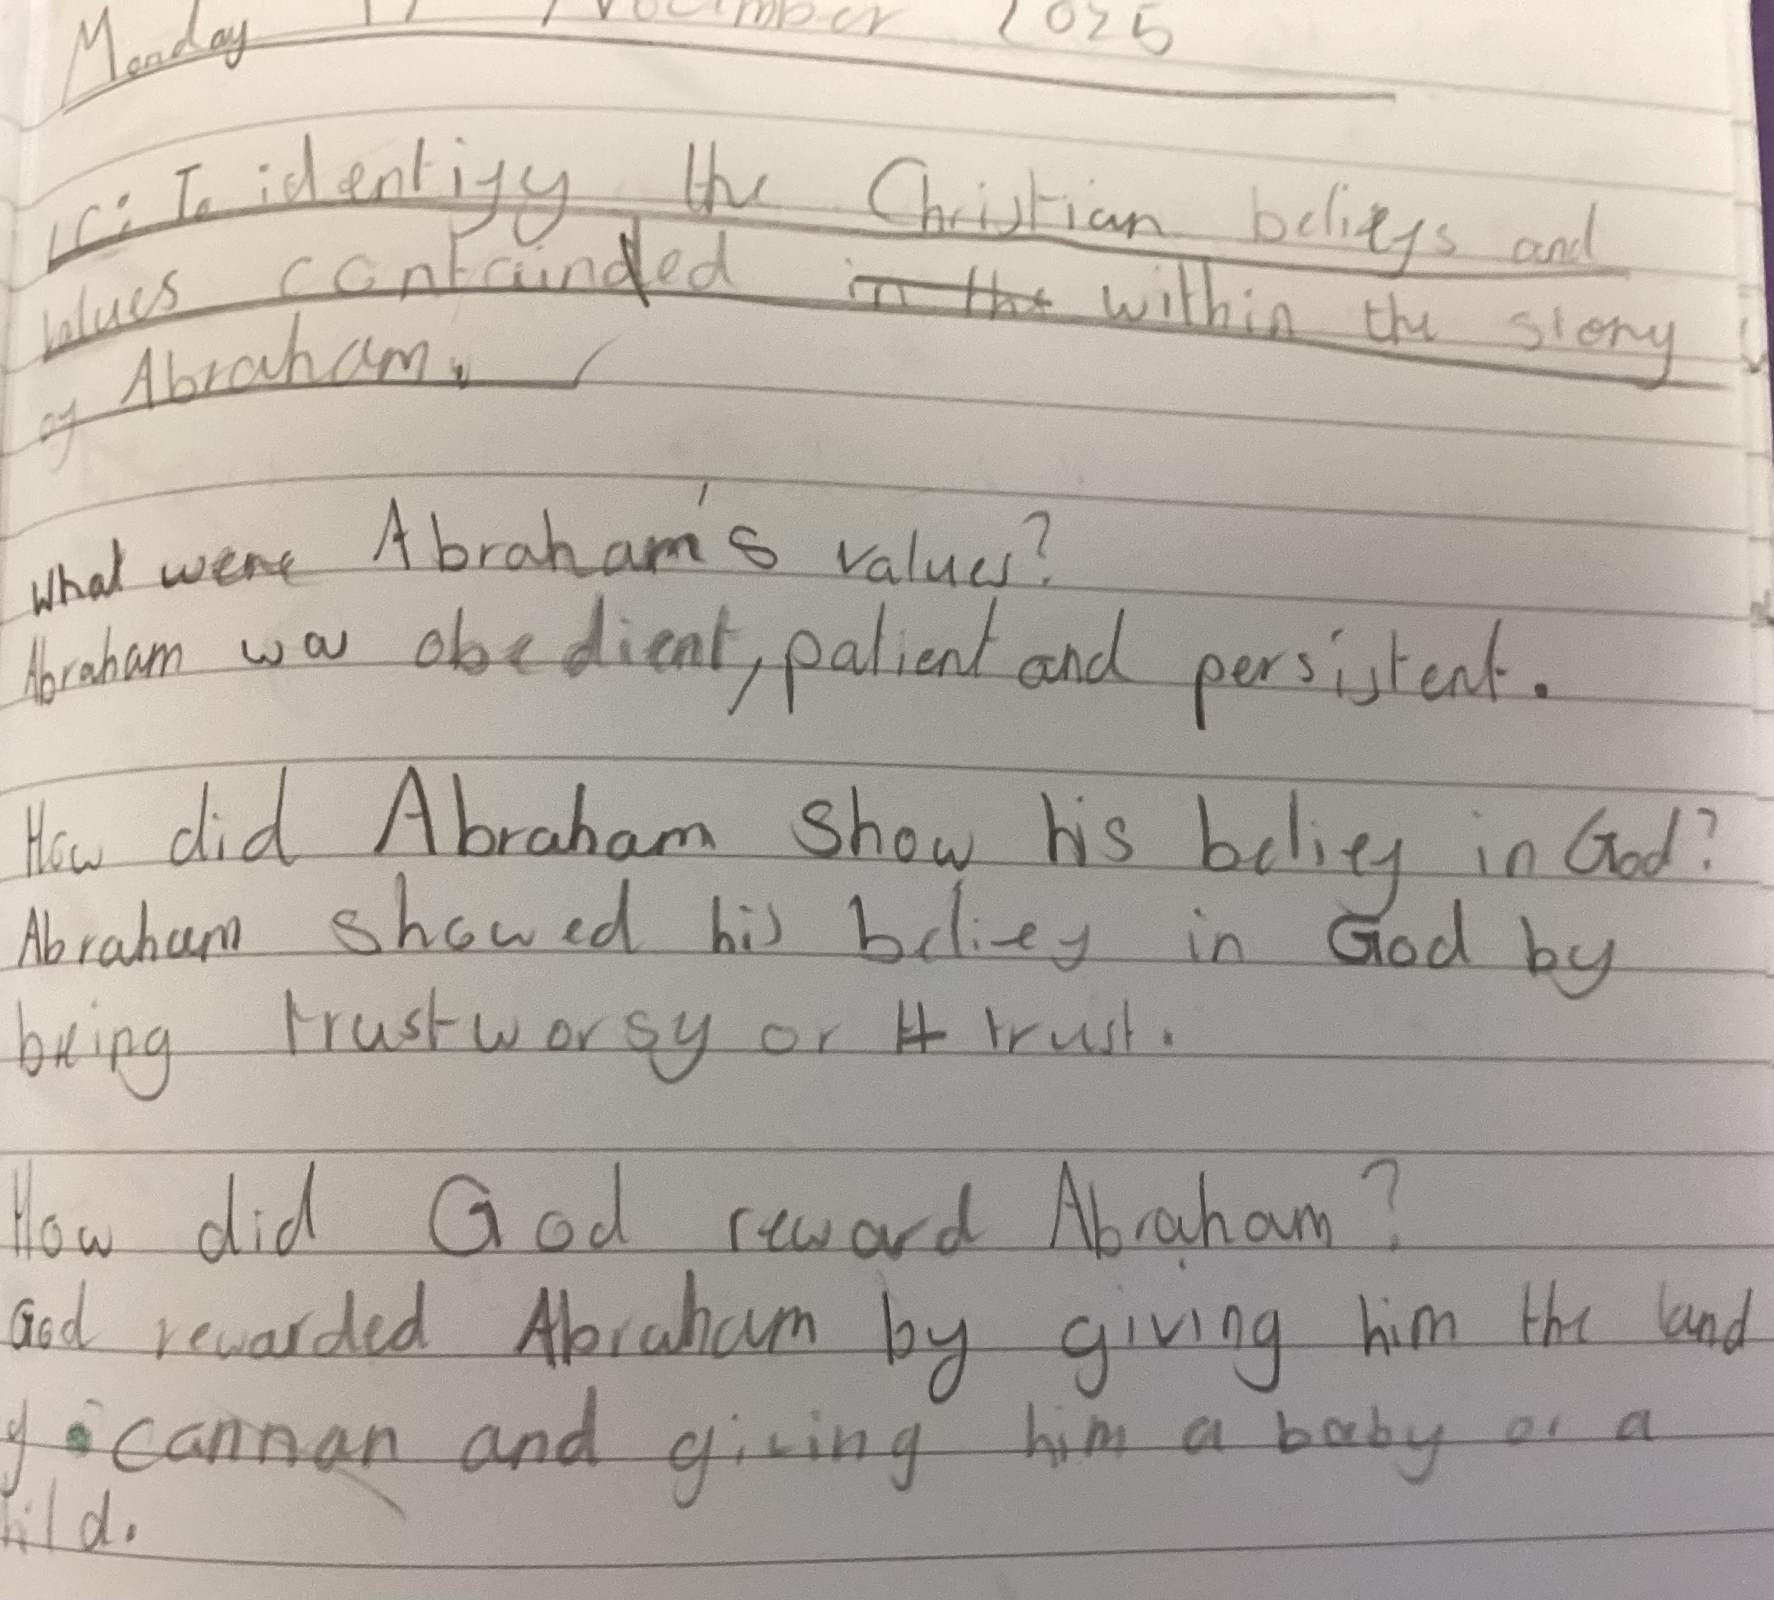 Monday 17 November 2025
LC: To identify the Christian beliefs and
values containded in the within the story
of Abraham.
What were Abraham's values?
Abraham was obedient, patient and persistent.
How did Abraham show his belief in God?
Abraham showed his belief in God by
being trustworsy or trust.
How did God reward Abraham?
God rewarded Abraham by giving him the land
of cannan and giving him a baby or a
hild.